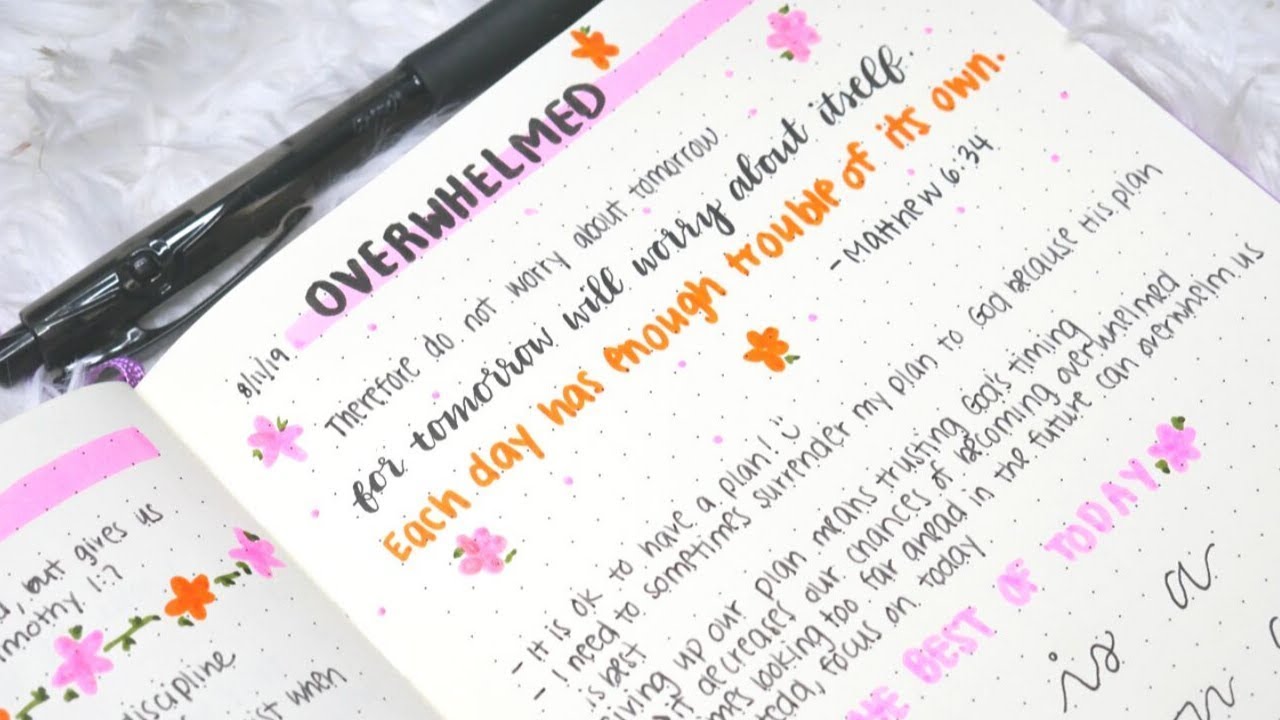 but gives us
1:7
discipline
when
8/11/19
OVERWHELMED
Therefore do not worry about tomorrow
for tomorrow will worry about itself.
Each day has enough trouble of its own.
- Matthew 6:34
- It is ok to have a plan! :)
- I need to somtimes surrender my plan to God because His plan
is best
up our plan means trusting God's timing
it decreases our chances of becoming overwhelmed
looking too far ahead in the future can overwhelm us
focus on today
BEST OF TODAY
is a